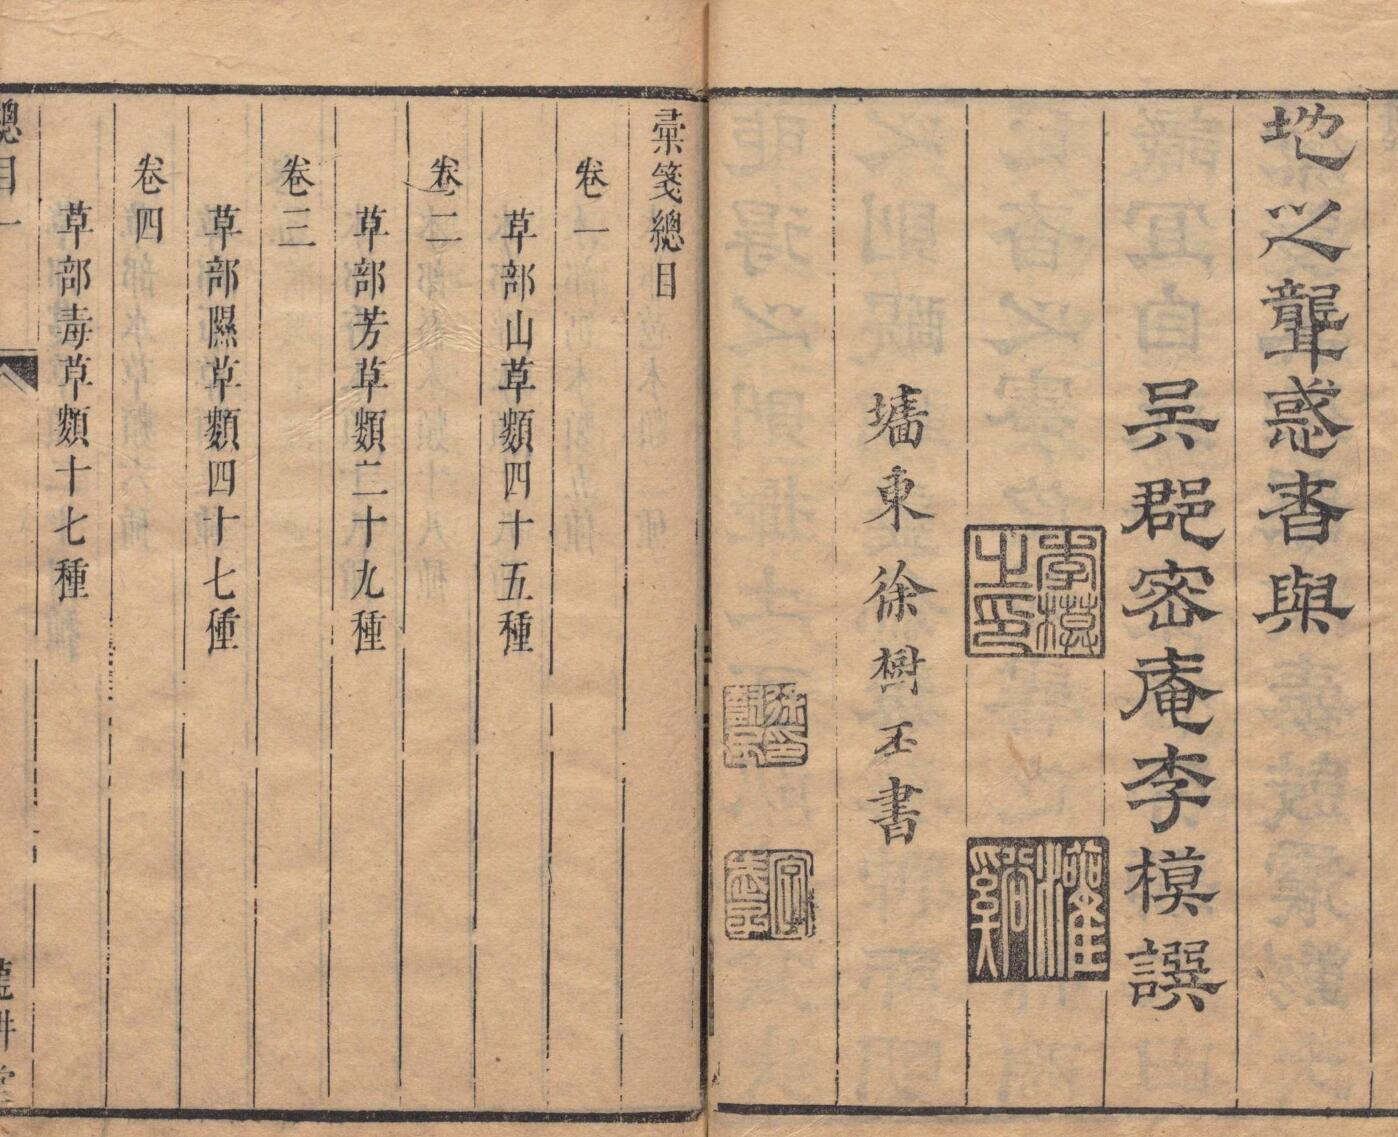 地之聾惑者與
吳郡密庵李模譔
李模之印
墻東徐樹丕書
彙箋總目
卷一
草部山草類四十五種
卷二
草部芳草類二十九種
卷三
草部隰草類四十七種
卷四
草部毒草類十七種
總目一